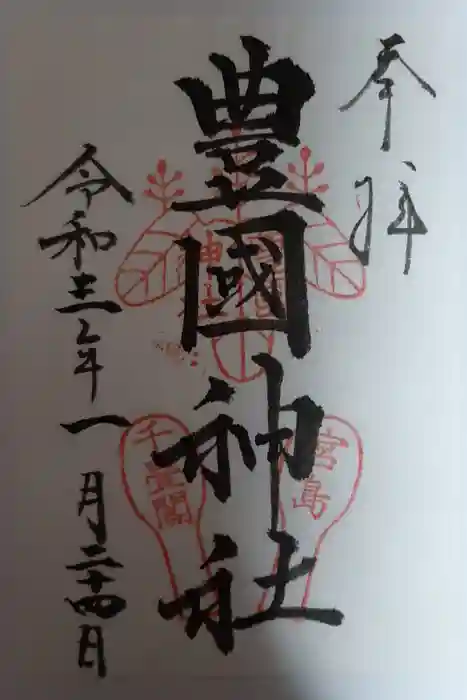 奉拝
豊國神社
豊國神社
宮島
千畳閣
令和三年一月二十四日